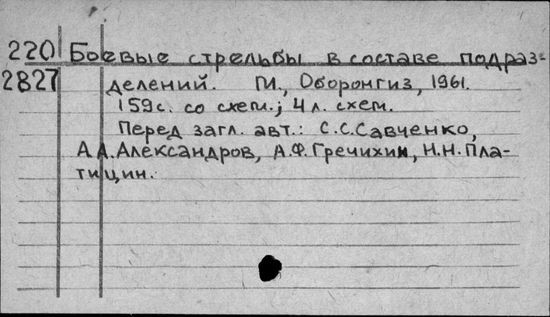 220 Боевые стрельбы в составе подраз-
2827 делений. М., Оборонгиз, 1961.
159с. со схем.; 4 л. схем.
Перед загл. авт.: С.С.Савченко,
А.А.Александров, А.Ф.Гречихин, Н.Н.Пла-
тицин.